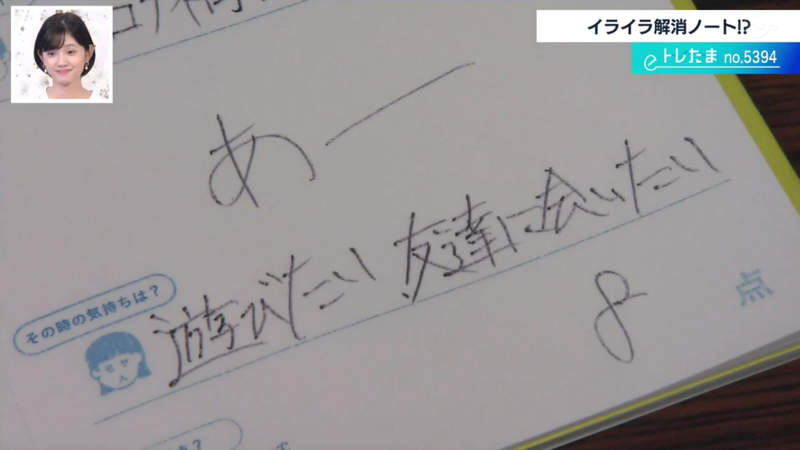 イライラ解消ノート!?
トレたま no.5394
あー
遊びたい 友達に会いたい
その時の気持ちは?
8 点
?